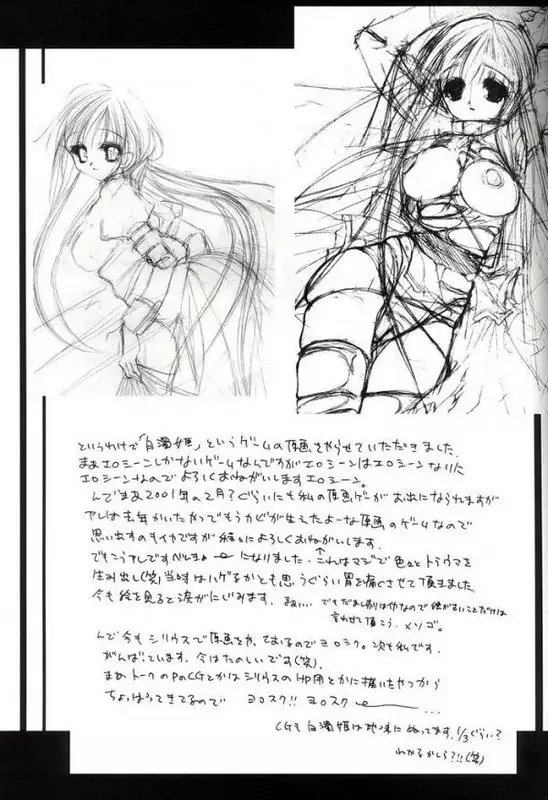 というわけで「白濁姫」というゲームの原画をやらせていただきました.
まあエロシーンしかないゲームなんですがエロシーンはエロシーンなりに
エロシーンなのでよろしくおねがいしますエロシーン。
んでまあ2001年の2月?ぐらいにも私の原画ゲーがお出になられますが
アレは去年かいたかつてもうカビが生えたよーな原画のゲームなので
思い出すのもイカですが よろしくおねがいします。
でもこうアレですべ になりました.↑これはマジで色々とトラウマを
生み出し(笑)当時はハゲるかとも思うぐらい胃を痛くさせて頂きました
今も絵を見ると涙がにじみます. まぁ…. でも
言わせて頂こう.メソゴ。
んで今もシリウスで原画をやっておるのでヨロシク。次も私です.
がんばっています. 今はたのしいです(笑).
まあトークのPのCGとかはシリウスのHP用とかに描いたやつから
ちょっぱってきてるので ヨロスク!! ヨロスク …
CGも白濁姫は地味にぬってます. 1/3ぐらい?
わかるかしら?!!(笑)